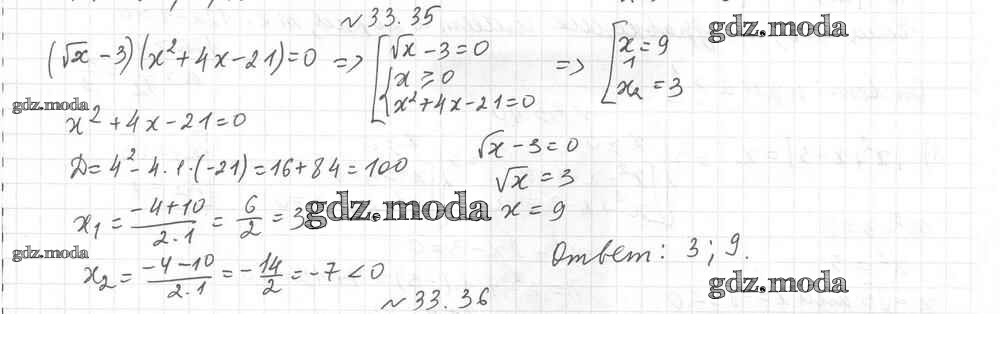 №33.35
gdz.moda
(√x - 3)(x² + 4x - 21) = 0 => [ √x - 3 = 0 { x ≥ 0 x² + 4x - 21 = 0 => [ x₁ = 9 x₂ = 3
gdz.moda
x² + 4x - 21 = 0
D = 4² - 4·1·(-21) = 16 + 84 = 100
√x - 3 = 0
√x = 3
x₁ = (-4+10)/(2·1) = 6/2 = 3
gdz.moda
x = 9
gdz.moda
x₂ = (-4-10)/(2·1) = -14/2 = -7 < 0
Ответ: 3; 9.
gdz.moda
№33.36